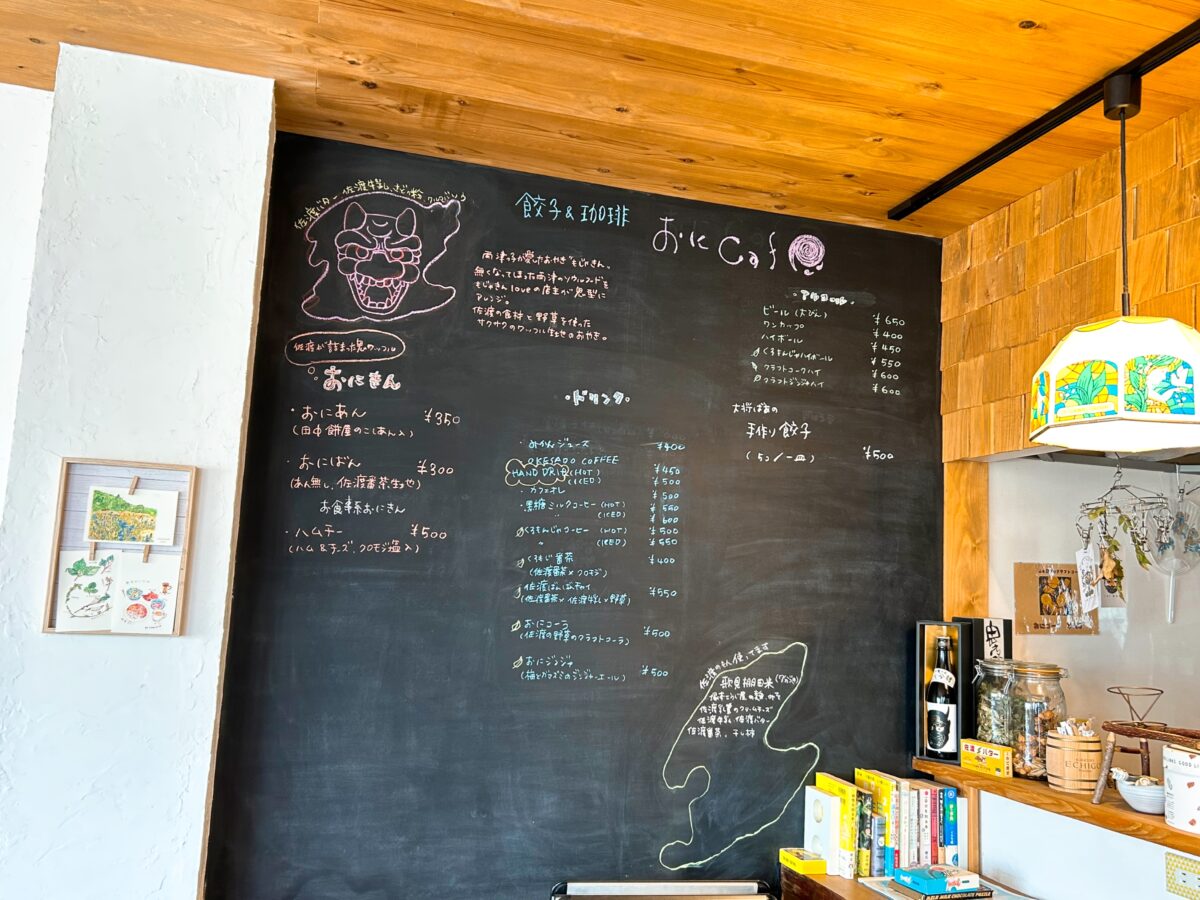 餃子&珈琲
おに Cafe
佐渡バター 佐渡牛乳
両津っ子が愛したおやき"もじゃきん"。
無くなってしまった両津のソウルフードを
もじゃきんloveの店主が鬼型に
アレンジ。
佐渡の食材と野草を使った
サクサクのワッフル生地のおやき。
佐渡が詰まった鬼のワッフル
おにきん
・おにあん ¥350
(田中餅屋のこしあん入)
・おにばん ¥300
(あん無し、佐渡番茶生地)
お食事系おにきん
・ハムチー ¥500
(ハム&チーズ、クロモジ塩入)
・ドリンク・
・みかんジュース ¥400
OKESADO COFFEE
HAND DRIP (HOT) ¥450
(ICED) ¥500
・カフェオレ ¥500
・黒糖ミルクコーヒー (HOT) ¥550
〃 (ICED) ¥600
くろもんじゃコーヒー (HOT) ¥500
〃 (ICED) ¥550
くろもじ番茶 ¥400
(佐渡番茶×クロモジ)
佐渡ばんばんチャイ ¥550
(佐渡番茶×佐渡牛乳×野草)
おにコーラ ¥500
(佐渡の野草のクラフトコーラ)
おにジンジャ ¥500
(梅とガマズミのジンジャーエール)
・アルコール・
ビール(大びん) ¥650
ワンカップ ¥400
ハイボール ¥450
くろもんじゃハイボール ¥550
クラフトコークハイ ¥600
クラフトジンジャハイ ¥600
大将ばぁの
手作り餃子
(5コ/一皿) ¥500
佐渡のもん使ってます
歌見棚田米
佐渡乳業のクリームチーズ
佐渡牛乳 佐渡バター
佐渡番茶、干し柿
佐渡バター
ECHIGO